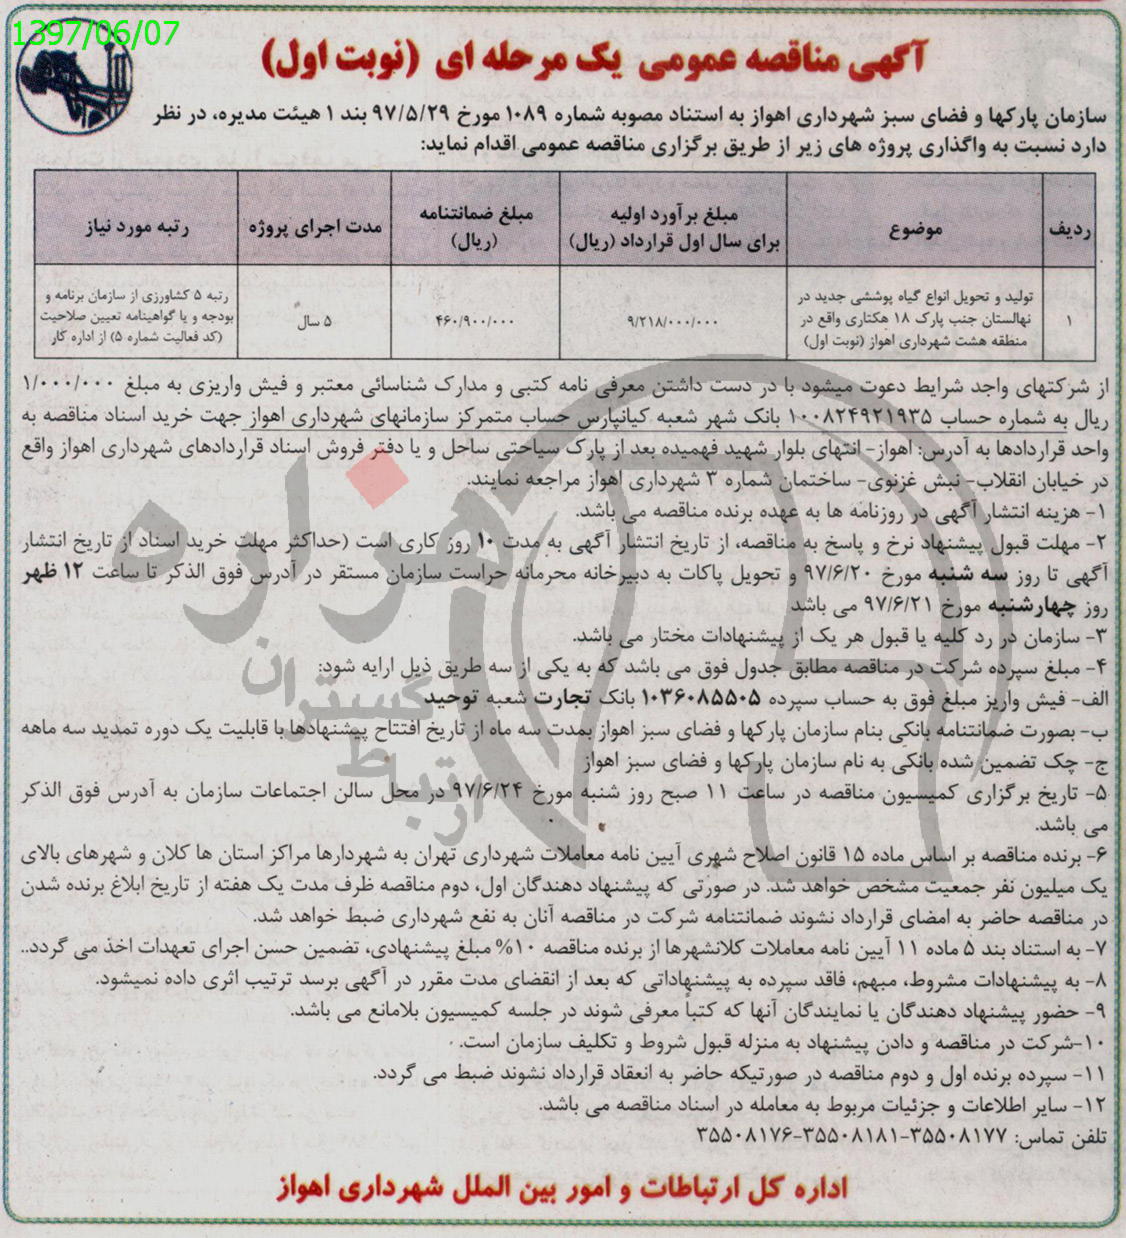 1397/06/07
آگهی مناقصه عمومی یک مرحله ای (نوبت اول)
سازمان پارکها و فضای سبز شهرداری اهواز به استناد مصوبه شماره ۱۰۸۹ مورخ ۹۷/۵/۲۹ بند ۱ هیئت مدیره، در نظر
دارد نسبت به واگذاری پروژه های زیر از طریق برگزاری مناقصه عمومی اقدام نماید:
ردیف
موضوع
مبلغ برآورد اولیه
برای سال اول قرارداد (ریال)
مبلغ ضمانتنامه
(ریال)
مدت اجرای پروژه
رتبه مورد نیاز
۱
تولید و تحویل انواع گیاه پوششی جدید در
نهالستان جنب پارک ۱۸ هکتاری واقع در
منطقه هشت شهرداری اهواز (نوبت اول)
۹/۲۱۸/۰۰۰/۰۰۰
۴۶۰/۹۰۰/۰۰۰
۵ سال
رتبه ۵ کشاورزی از سازمان برنامه و
بودجه و یا گواهینامه تعیین صلاحیت
(کد فعالیت شماره ۵) از اداره کار
از شرکتهای واجد شرایط دعوت میشود با در دست داشتن معرفی نامه کتبی و مدارک شناسائی معتبر و فیش واریزی به مبلغ ۱/۰۰۰/۰۰۰
ریال به شماره حساب ۱۰۰۸۲۴۹۲۱۹۳۵ بانک شهر شعبه کیانپارس حساب متمرکز سازمانهای شهرداری اهواز جهت خرید اسناد مناقصه به
واحد قراردادها به آدرس: اهواز- انتهای بلوار شهید فهمیده بعد از پارک سیاحتی ساحل و یا دفتر فروش اسناد قراردادهای شهرداری اهواز واقع
در خیابان انقلاب- نبش غزنوی- ساختمان شماره ۳ شهرداری اهواز مراجعه نمایند.
۱- هزینه انتشار آگهی در روزنامه ها به عهده برنده مناقصه می باشد.
۲- مهلت قبول پیشنهاد نرخ و پاسخ به مناقصه، از تاریخ انتشار آگهی به مدت ۱۰ روز کاری است (حداکثر مهلت خرید اسناد از تاریخ انتشار
آگهی تا روز سه شنبه مورخ ۹۷/۶/۲۰ و تحویل پاکات به دبیرخانه محرمانه حراست سازمان مستقر در آدرس فوق الذکر تا ساعت ۱۲ ظهر
روز چهارشنبه مورخ ۹۷/۶/۲۱ می باشد
۳- سازمان در رد کلیه یا قبول هر یک از پیشنهادات مختار می باشد.
۴- مبلغ سپرده شرکت در مناقصه مطابق جدول فوق می باشد که به یکی از سه طریق ذیل ارایه شود:
الف- فیش واریز مبلغ فوق به حساب سپرده ۱۰۳۶۰۸۵۵۰۵ بانک تجارت شعبه توحید
ب- بصورت ضمانتنامه بانکی بنام سازمان پارکها و فضای سبز اهواز بمدت سه ماه از تاریخ افتتاح پیشنهادها با قابلیت یک دوره تمدید سه ماهه
ج- چک تضمین شده بانکی به نام سازمان پارکها و فضای سبز اهواز
۵- تاریخ برگزاری کمیسیون مناقصه در ساعت ۱۱ صبح روز شنبه مورخ ۹۷/۶/۲۴ در محل سالن اجتماعات سازمان به آدرس فوق الذکر
می باشد.
۶- برنده مناقصه بر اساس ماده ۱۵ قانون اصلاح شهری آیین نامه معاملات شهرداری تهران به شهردارها مراکز استان ها کلان و شهرهای بالای
یک میلیون نفر جمعیت مشخص خواهد شد. در صورتی که پیشنهاد دهندگان اول، دوم مناقصه ظرف مدت یک هفته از تاریخ ابلاغ برنده شدن
در مناقصه حاضر به امضای قرارداد نشوند ضمانتنامه شرکت در مناقصه آنان به نفع شهرداری ضبط خواهد شد.
۷- به استناد بند ۵ ماده ۱۱ آیین نامه معاملات کلانشهرها از برنده مناقصه ۱۰% مبلغ پیشنهادی، تضمین حسن اجرای تعهدات اخذ می گردد..
۸- به پیشنهادات مشروط، مبهم، فاقد سپرده به پیشنهاداتی که بعد از انقضای مدت مقرر در آگهی برسد ترتیب اثری داده نمیشود.
۹- حضور پیشنهاد دهندگان یا نمایندگان آنها که کتباً معرفی شوند در جلسه کمیسیون بلامانع می باشد.
۱۰-شرکت در مناقصه و دادن پیشنهاد به منزله قبول شروط و تکلیف سازمان است.
۱۱- سپرده برنده اول و دوم مناقصه در صورتیکه حاضر به انعقاد قرارداد نشوند ضبط می گردد.
۱۲- سایر اطلاعات و جزئیات مربوط به معامله در اسناد مناقصه می باشد.
تلفن تماس: ۳۵۵۰۸۱۷۷-۳۵۵۰۸۱۸۱-۳۵۵۰۸۱۷۶
اداره کل ارتباطات و امور بین الملل شهرداری اهواز
هزاره
گستران
ارتباط